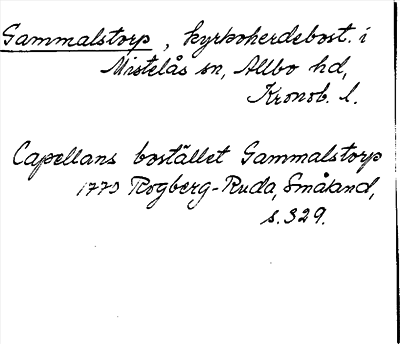 Gammalstorp, kyrkoherdebost. i
Mistelås sn, Allbo hd,
Kronob. l.
Capellans bostället Gammalstorp
1770 Rogberg-Ruda, Småland,
s. 329.